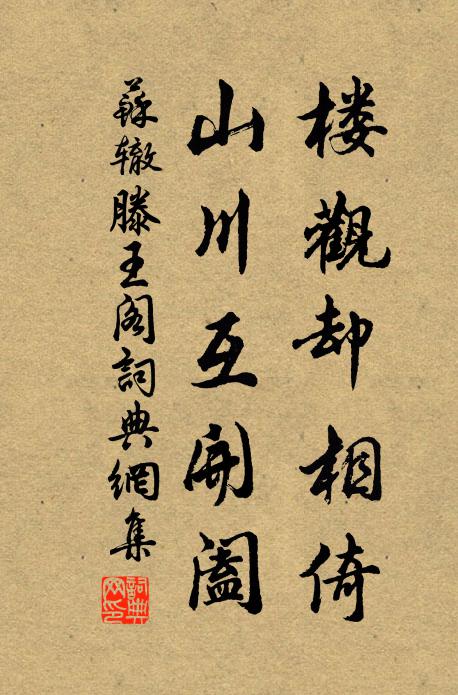 楼觀却相倚
山川互開闔
蘇辙滕王阁詞典網集
詞典
网印